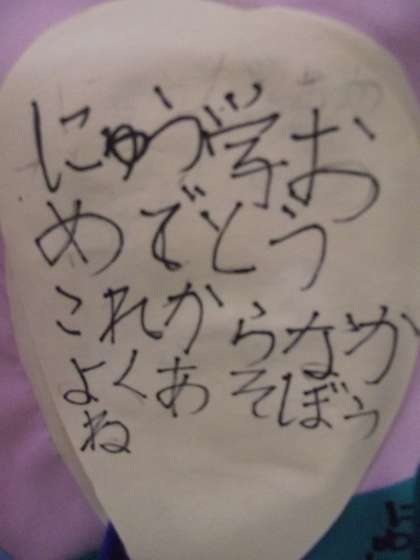 にゅう学お
めでとう
これからなか
よくあそぼう
ね